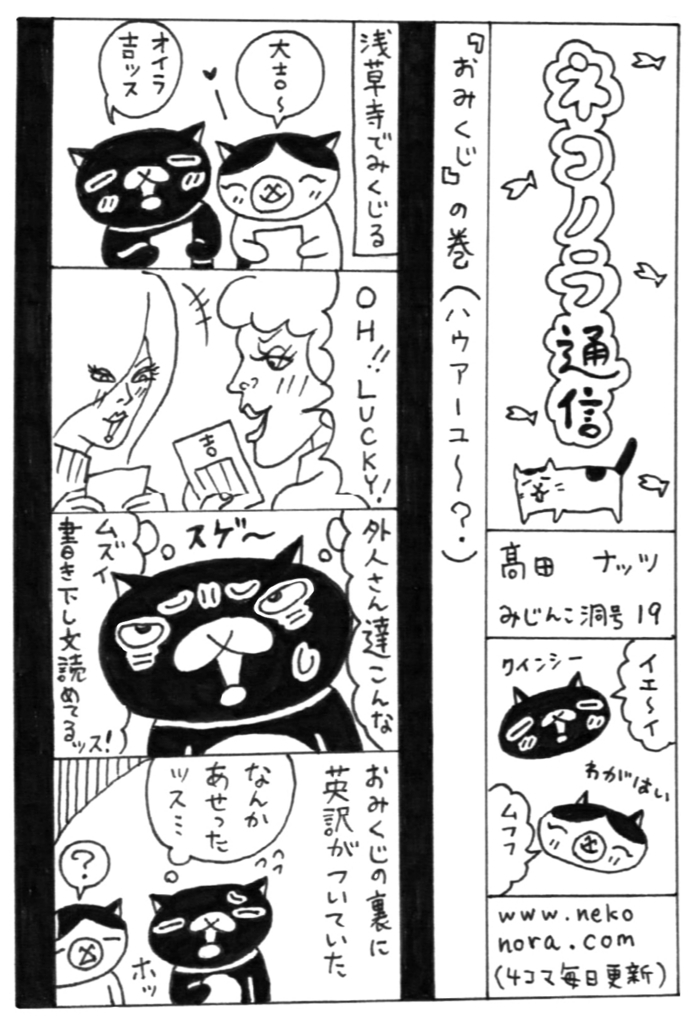 ネコノラ通信
高田 ナッツ
みじんこ洞号 19
イエ〜イ
クインシー
わがはい
ムフフ
www.neko
nora.com
(4コマ毎日更新)
『おみくじ』の巻(ハウアーユ〜?.)
浅草寺でみくじる
大吉〜
オイラ
吉ッス
OH!! LUCKY!
吉
外人さん達こんな
スゲ〜
ムズイ
書き下し文読めてるッス!
おみくじの裏に
英訳がついていた
なんか
あせった
ッス…
?
ホッ